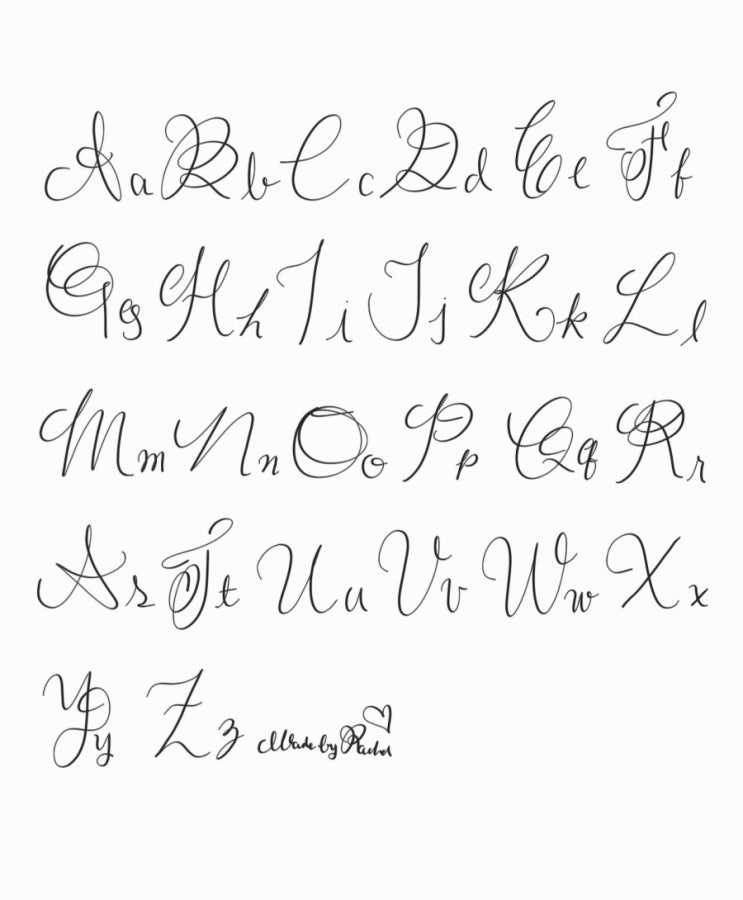 Aa Bb Cc Dd Ee Ff
Gg Hh Ii Jj Kk Ll
Mm Nn Oo Pp Qq Rr
Ss Tt Uu Vv Ww Xx
Yy Zz Made by Rachel